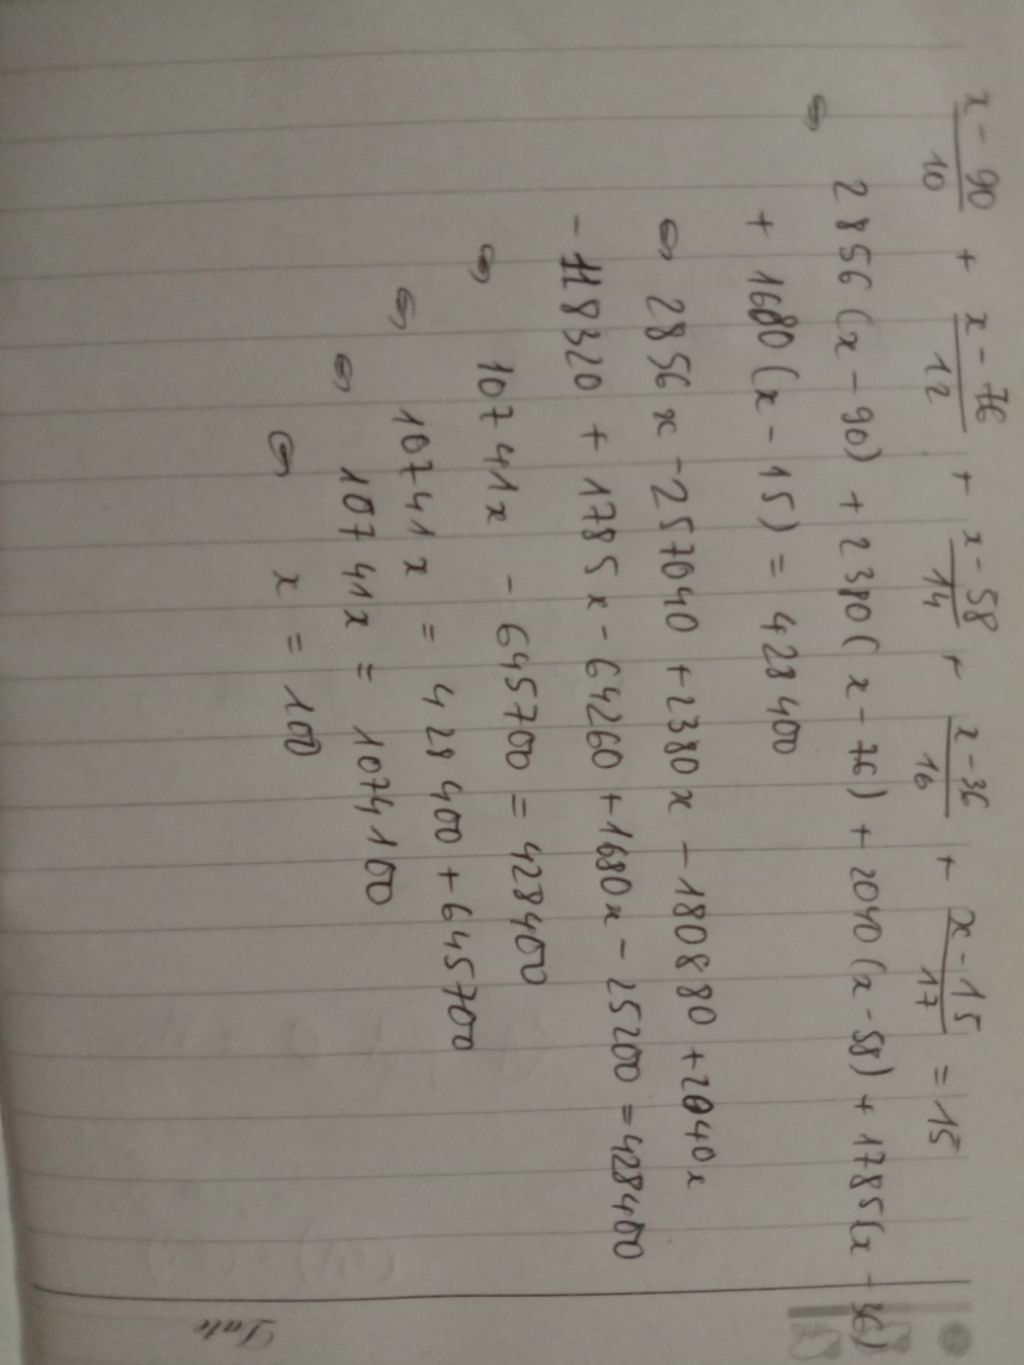 x - 90/10 + x - 76/12 + x - 58/14 + x - 36/16 + x - 15/17 = 15
⇔ 2856(x - 90) + 2380(x - 76) + 2040(x - 58) + 1785(x - 36)
+ 1680(x - 15) = 428400
⇔ 2856x - 257040 + 2380x - 180880 + 2040x
- 118320 + 1785x - 64260 + 1680x - 25200 = 428400
⇔ 10741x - 645700 = 428400
⇔ 10741x = 428400 + 645700
⇔ 10741x = 1074100
⇔ x = 100
Date